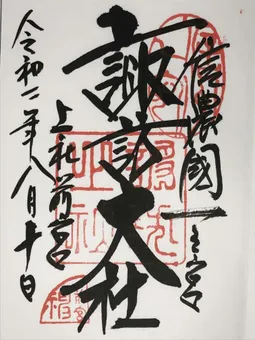 信濃國一之宮
諏訪大社
上社前宮
令和二年八月十日